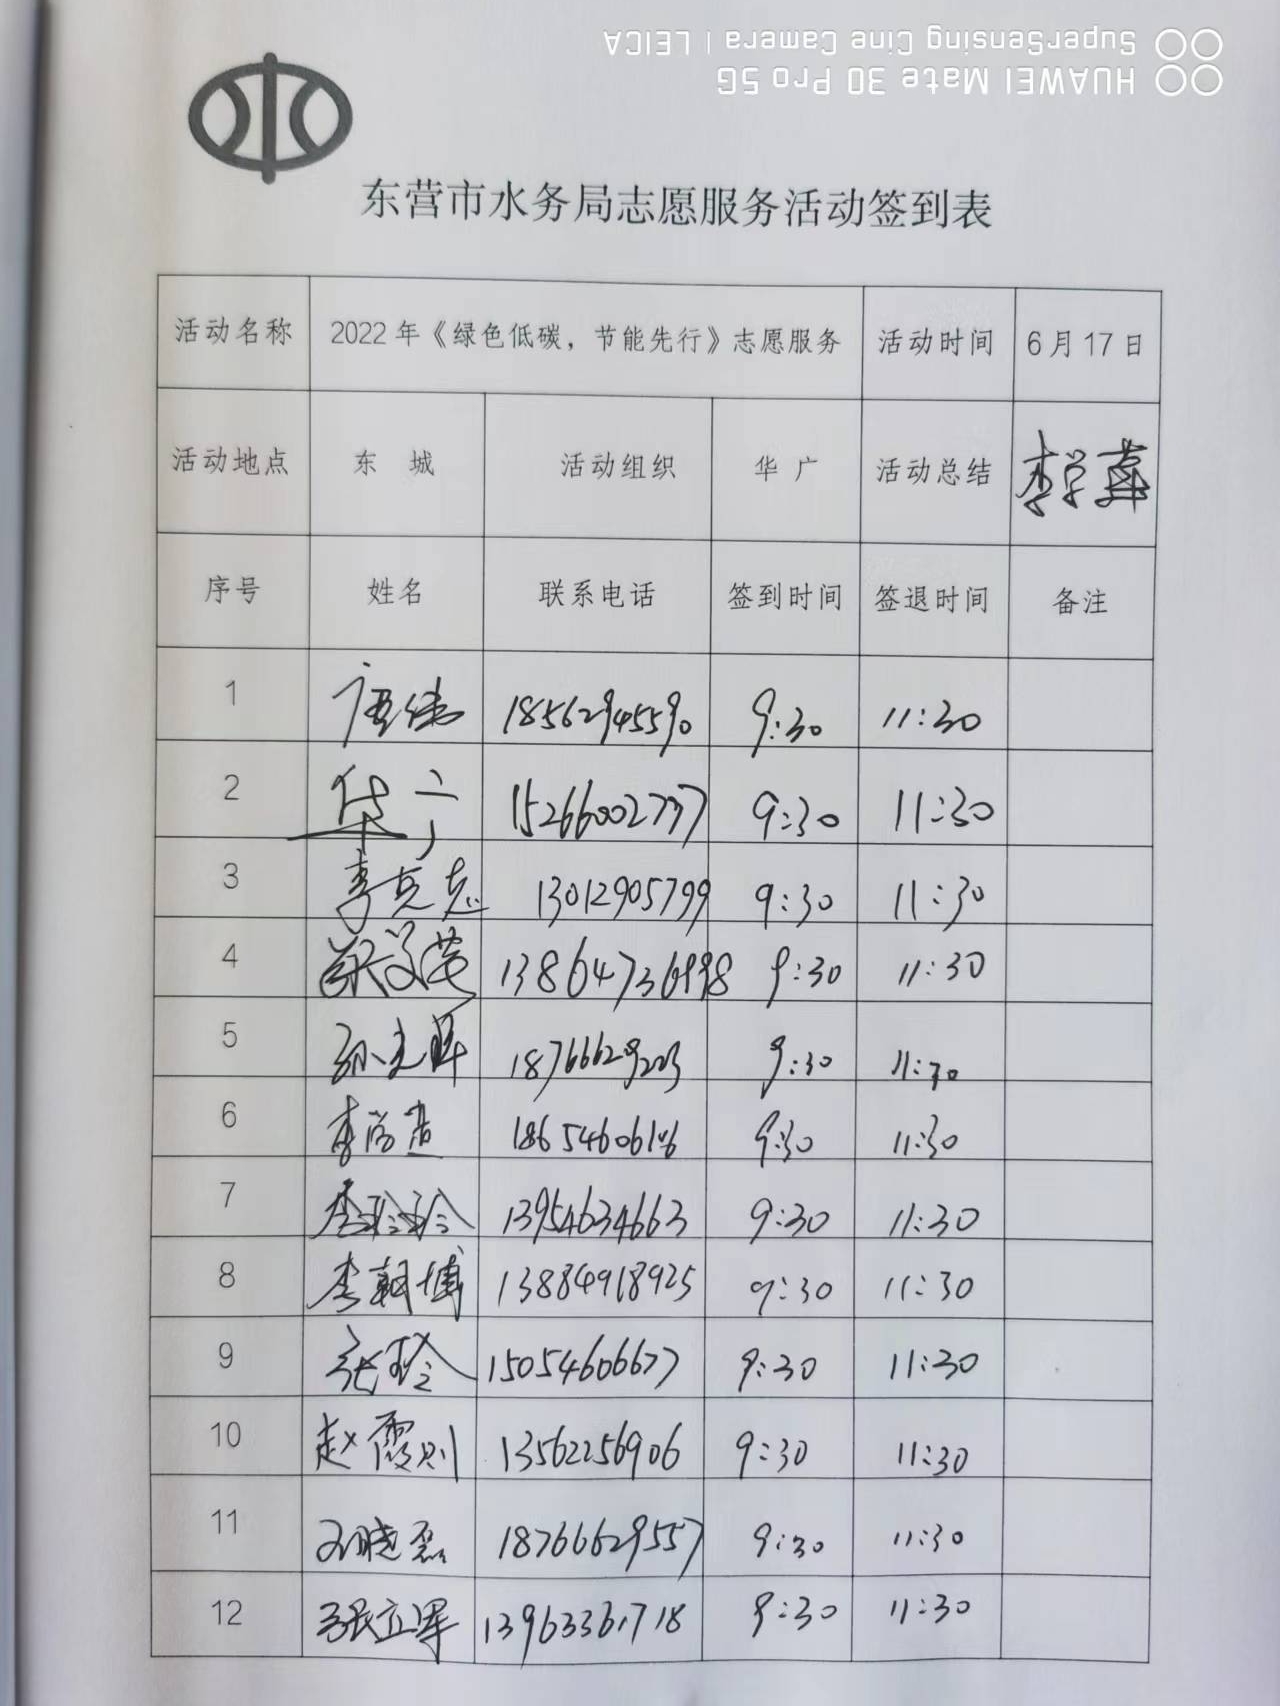 HUAWEI Mate 30 Pro 5G
SuperSensing Cine Camera | LEICA
东营市水务局志愿服务活动签到表
活动名称 2022年《绿色低碳，节能先行》志愿服务 活动时间 6月17日
活动地点 东 城 活动组织 华 广 活动总结 李学
序号 姓名 联系电话 签到时间 签退时间 备注
1 唐纬 18562945590 9:30 11:30
2 华广 15266002737 9:30 11:30
3 李克忠 13012905799 9:30 11:30
4 13864736998 9:30 11:30
5 孙 18766629223 9:30 11:30
6 李 9:30 11:30
7 李玲玲 13954634663 9:30 11:30
8 李朝博 13884918925 9:30 11:30
9 张玲 15054606677 9:30 11:30
10 赵霞 13562256906 9:30 11:30
11 晓磊 18766629557 9:30 11:30
12 张立军 13963361718 9:30 11:30